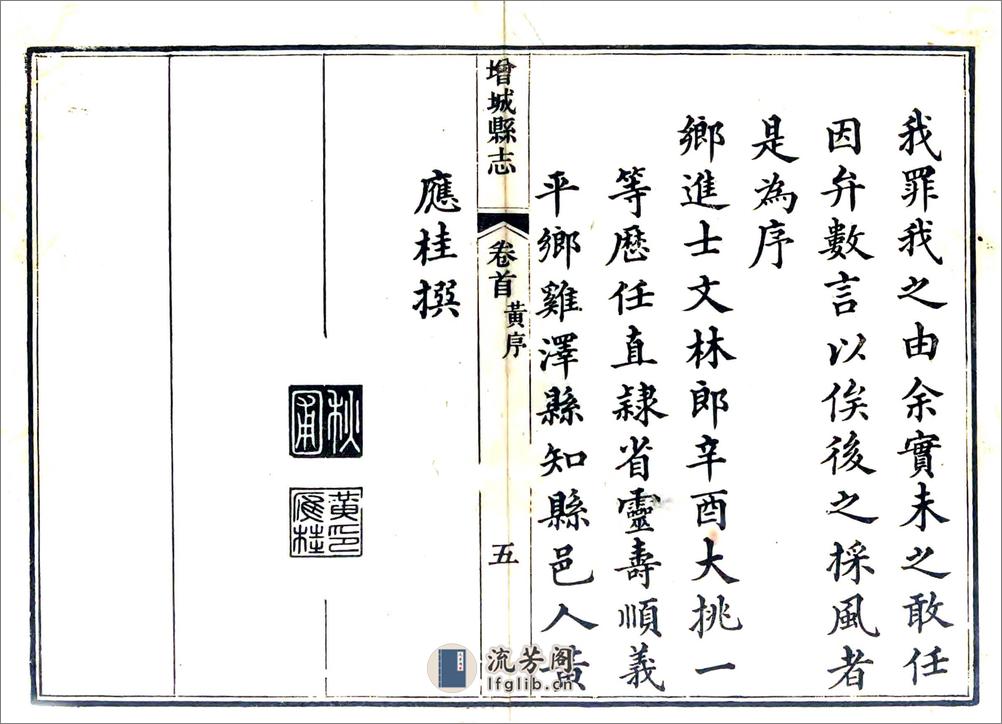 我罪我之由余實未之敢任
因弁數言以俟後之採風者
是為序
鄉進士文林郎辛酉大挑一
等歷任直隷省靈壽順義
平鄉雞澤縣知縣邑人黃
應桂撰
增城縣志
卷首
黃序
五
秋圃
黃應桂印
流芳阁
lfglib.cn